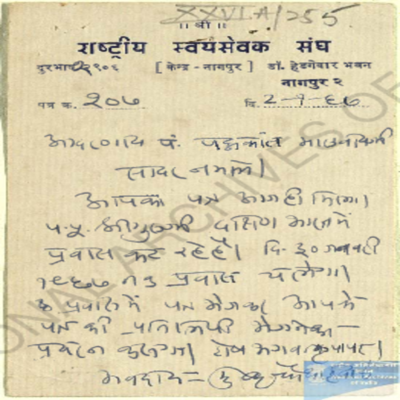 XXVI.A/255
॥ श्री ॥
राष्ट्रीय स्वयंसेवक संघ
दुरभाष २२९०६ [ केन्द्र - नागपुर ] डॉ. हेडगेवार भवन
नागपुर २
पत्र क. २०७ दि. 2-१-६७
आदरणीय पं. पद्मकांत मालवीयजी
सादर नमस्ते।
आपका पत्र आजही मिला।
प. पू. श्रीगुरुजी दक्षिण भारतमें
प्रवास कर रहे हैं। दि. ३० जनवरी
१९६७ तक प्रवास चलेगा।
प्रवासमें पत्र भेजकर आपके
पत्र की प्रतिलिपी भेजनेका
प्रयत्न करूंगा। शेष भगवत्कृपा।
भवदीय
ONAL ARCHIVES OF